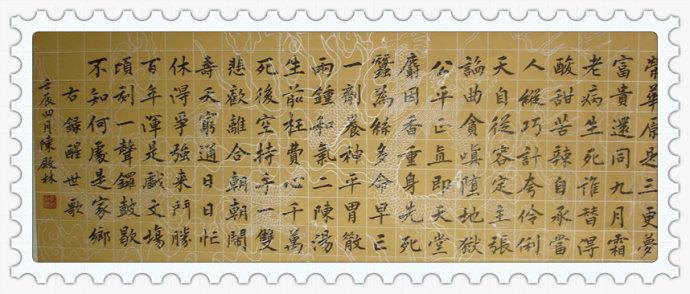 榮華原是三更夢
富貴還同九月霜
老病生死誰替得
酸甜苦辣自承當
人縱巧計夸伶俐
天自從容定主張
諂曲貪嗔墮地獄
公平正直即天堂
麝因香重身先死
蠶為絲多命早亡
一劑養神平胃散
兩鍾和氣二陳湯
生前枉費心千萬
死後空持手一雙
悲歡離合朝朝鬧
壽夭窮通日日忙
休得爭強來鬥勝
百年渾是戲文場
頃刻一聲鑼鼓歇
不知何處是家鄉
右錄醒世歌
壬辰四月陳殿林